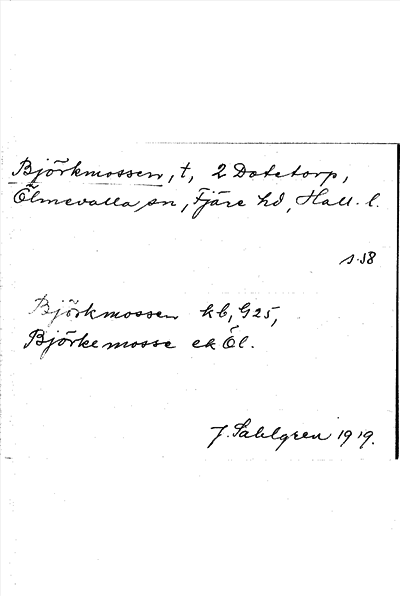 Björkmossen, t, 2 Dotetorp,
Ölmevalla sn, Fjäre hd, Hall. l.
s. 58
Björkmossen kb, G25,
Björkemosse ek Öl.
J. Sahlgren 1919.